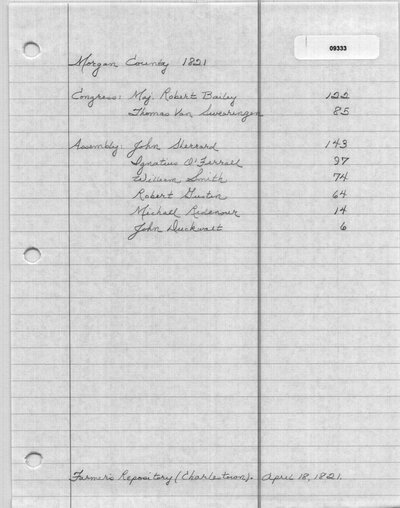 09333
Morgan County 1821
Congress: Maj. Robert Bailey 122
Thomas Van Swearingen 85
Assembly: John Sherrard 143
Ignatius O'Ferrall 97
William Smith 74
Robert Gustin 64
Michael Ridenour 14
John Duckwalt 6
Farmer's Repository (Charlestown). April 18, 1821.